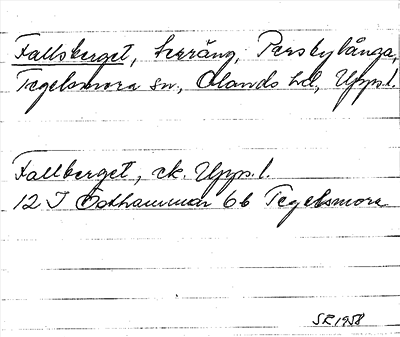 Fallsberget, terräng, Persbylånga,
Tegelsmora sn, Olands hd, Upps.l.
Fallberget, ek. Upps.l.
12 I Östhammar 6b Tegelsmora
SR 1958